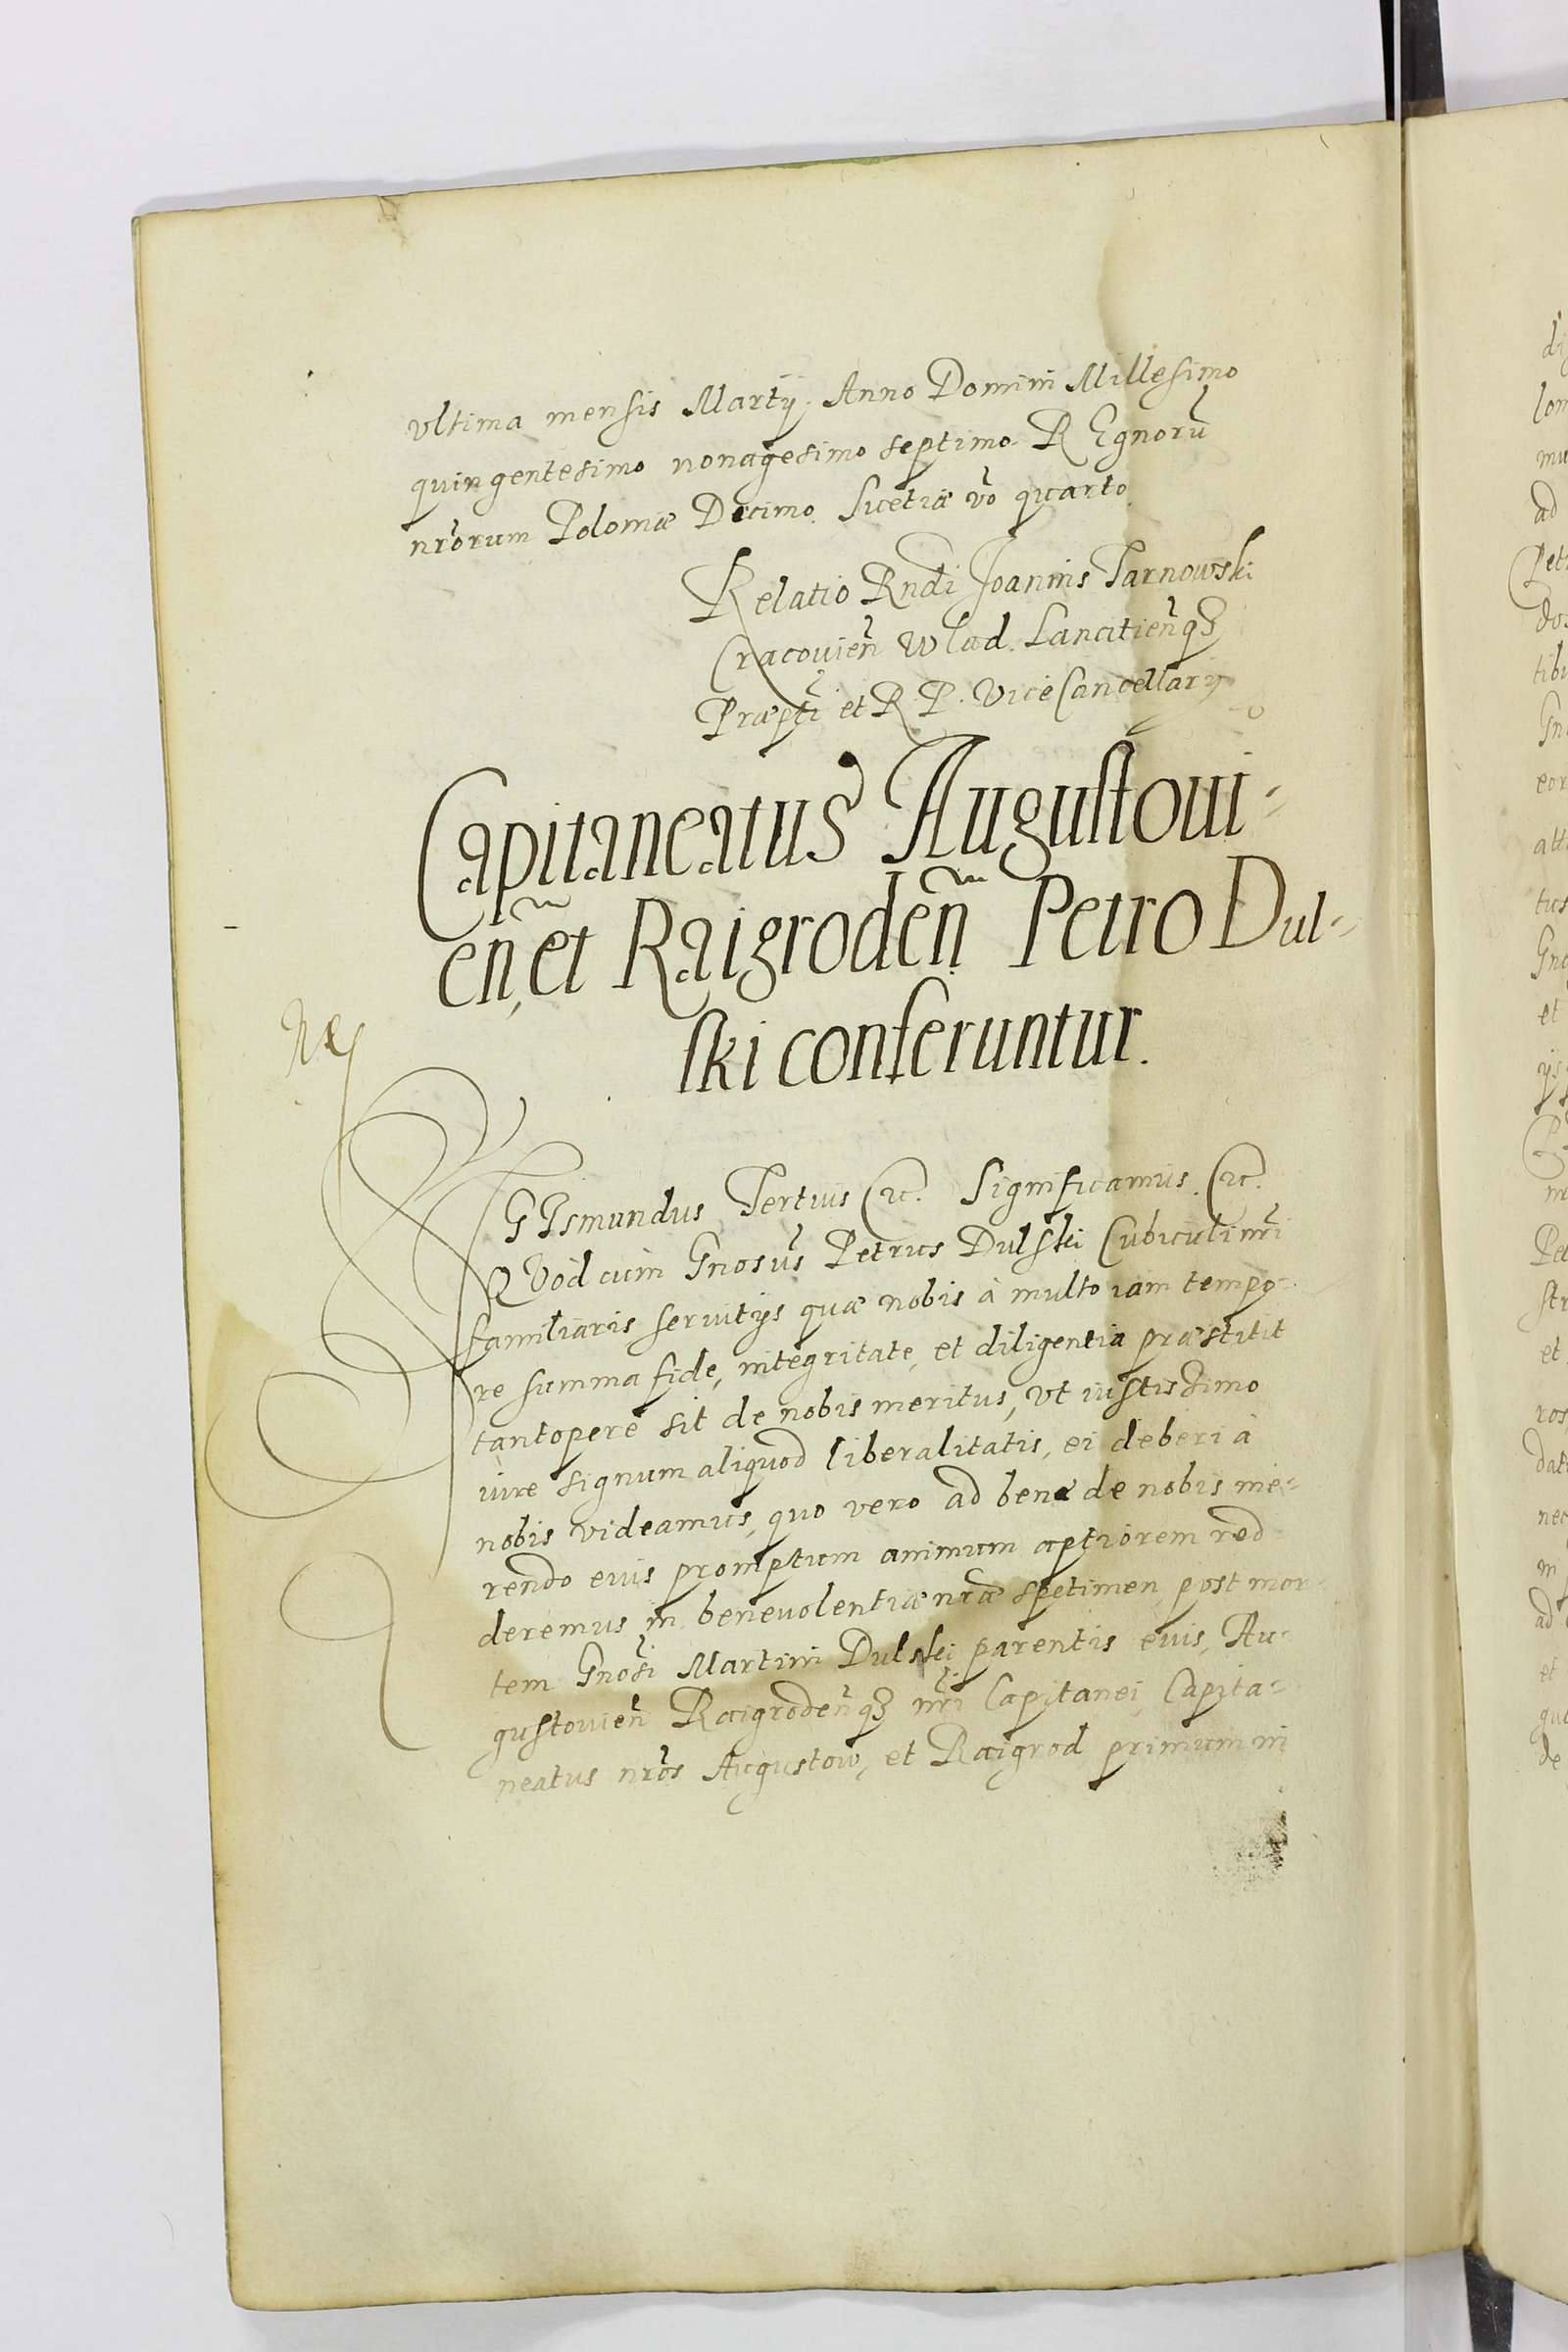 vltima mensis Martij. Anno Domini Millesimo
quingentesimo nonagesimo septimo. REgnorū
nr̄orum Poloniæ Decimo. Suetiæ v̄o quarto.
Relatio Rndi Joannis Tarnowski
Cracouien̄ Wlad. Lancitien̄qꝫ
Præpti et R P. ViceCancellarij
Capitaneatus Augustoui-
en̄, et Raigroden̄ Petro Dul-
ski conferuntur.
SIGIsmundus Tertius Etc. Significamus. Etc.
QVod cum Gnosus Petrus Dulski Cubiculi nr̄i
familiaris seruitijs quæ nobis à multo iam tempo-
re summa fide, integritate, et diligentia præstitit
tantopere sit de nobis meritus, vt iustissimo
iure signum aliquod liberalitatis, ei deberi à
nobis videamus, quo vero ad bene de nobis me-
rendo euis promptum animum aptiorem red
deremus in beneuolentiæ nr̄æ spetimen post mor-
tem Gnosi Martini Dulski parentis euis, Au-
gustouien̄ Raigroden̄qꝫ nr̄i Capitanei Capita-
neatus nr̄os Augustow, et Raigrod primum in
di
lon
mu
ad
Pet
dos
tibu
Gn
eor
att
tus
Gno
et
ijs
Pet
str
et
ros
dat
nec
in
ad
et
de